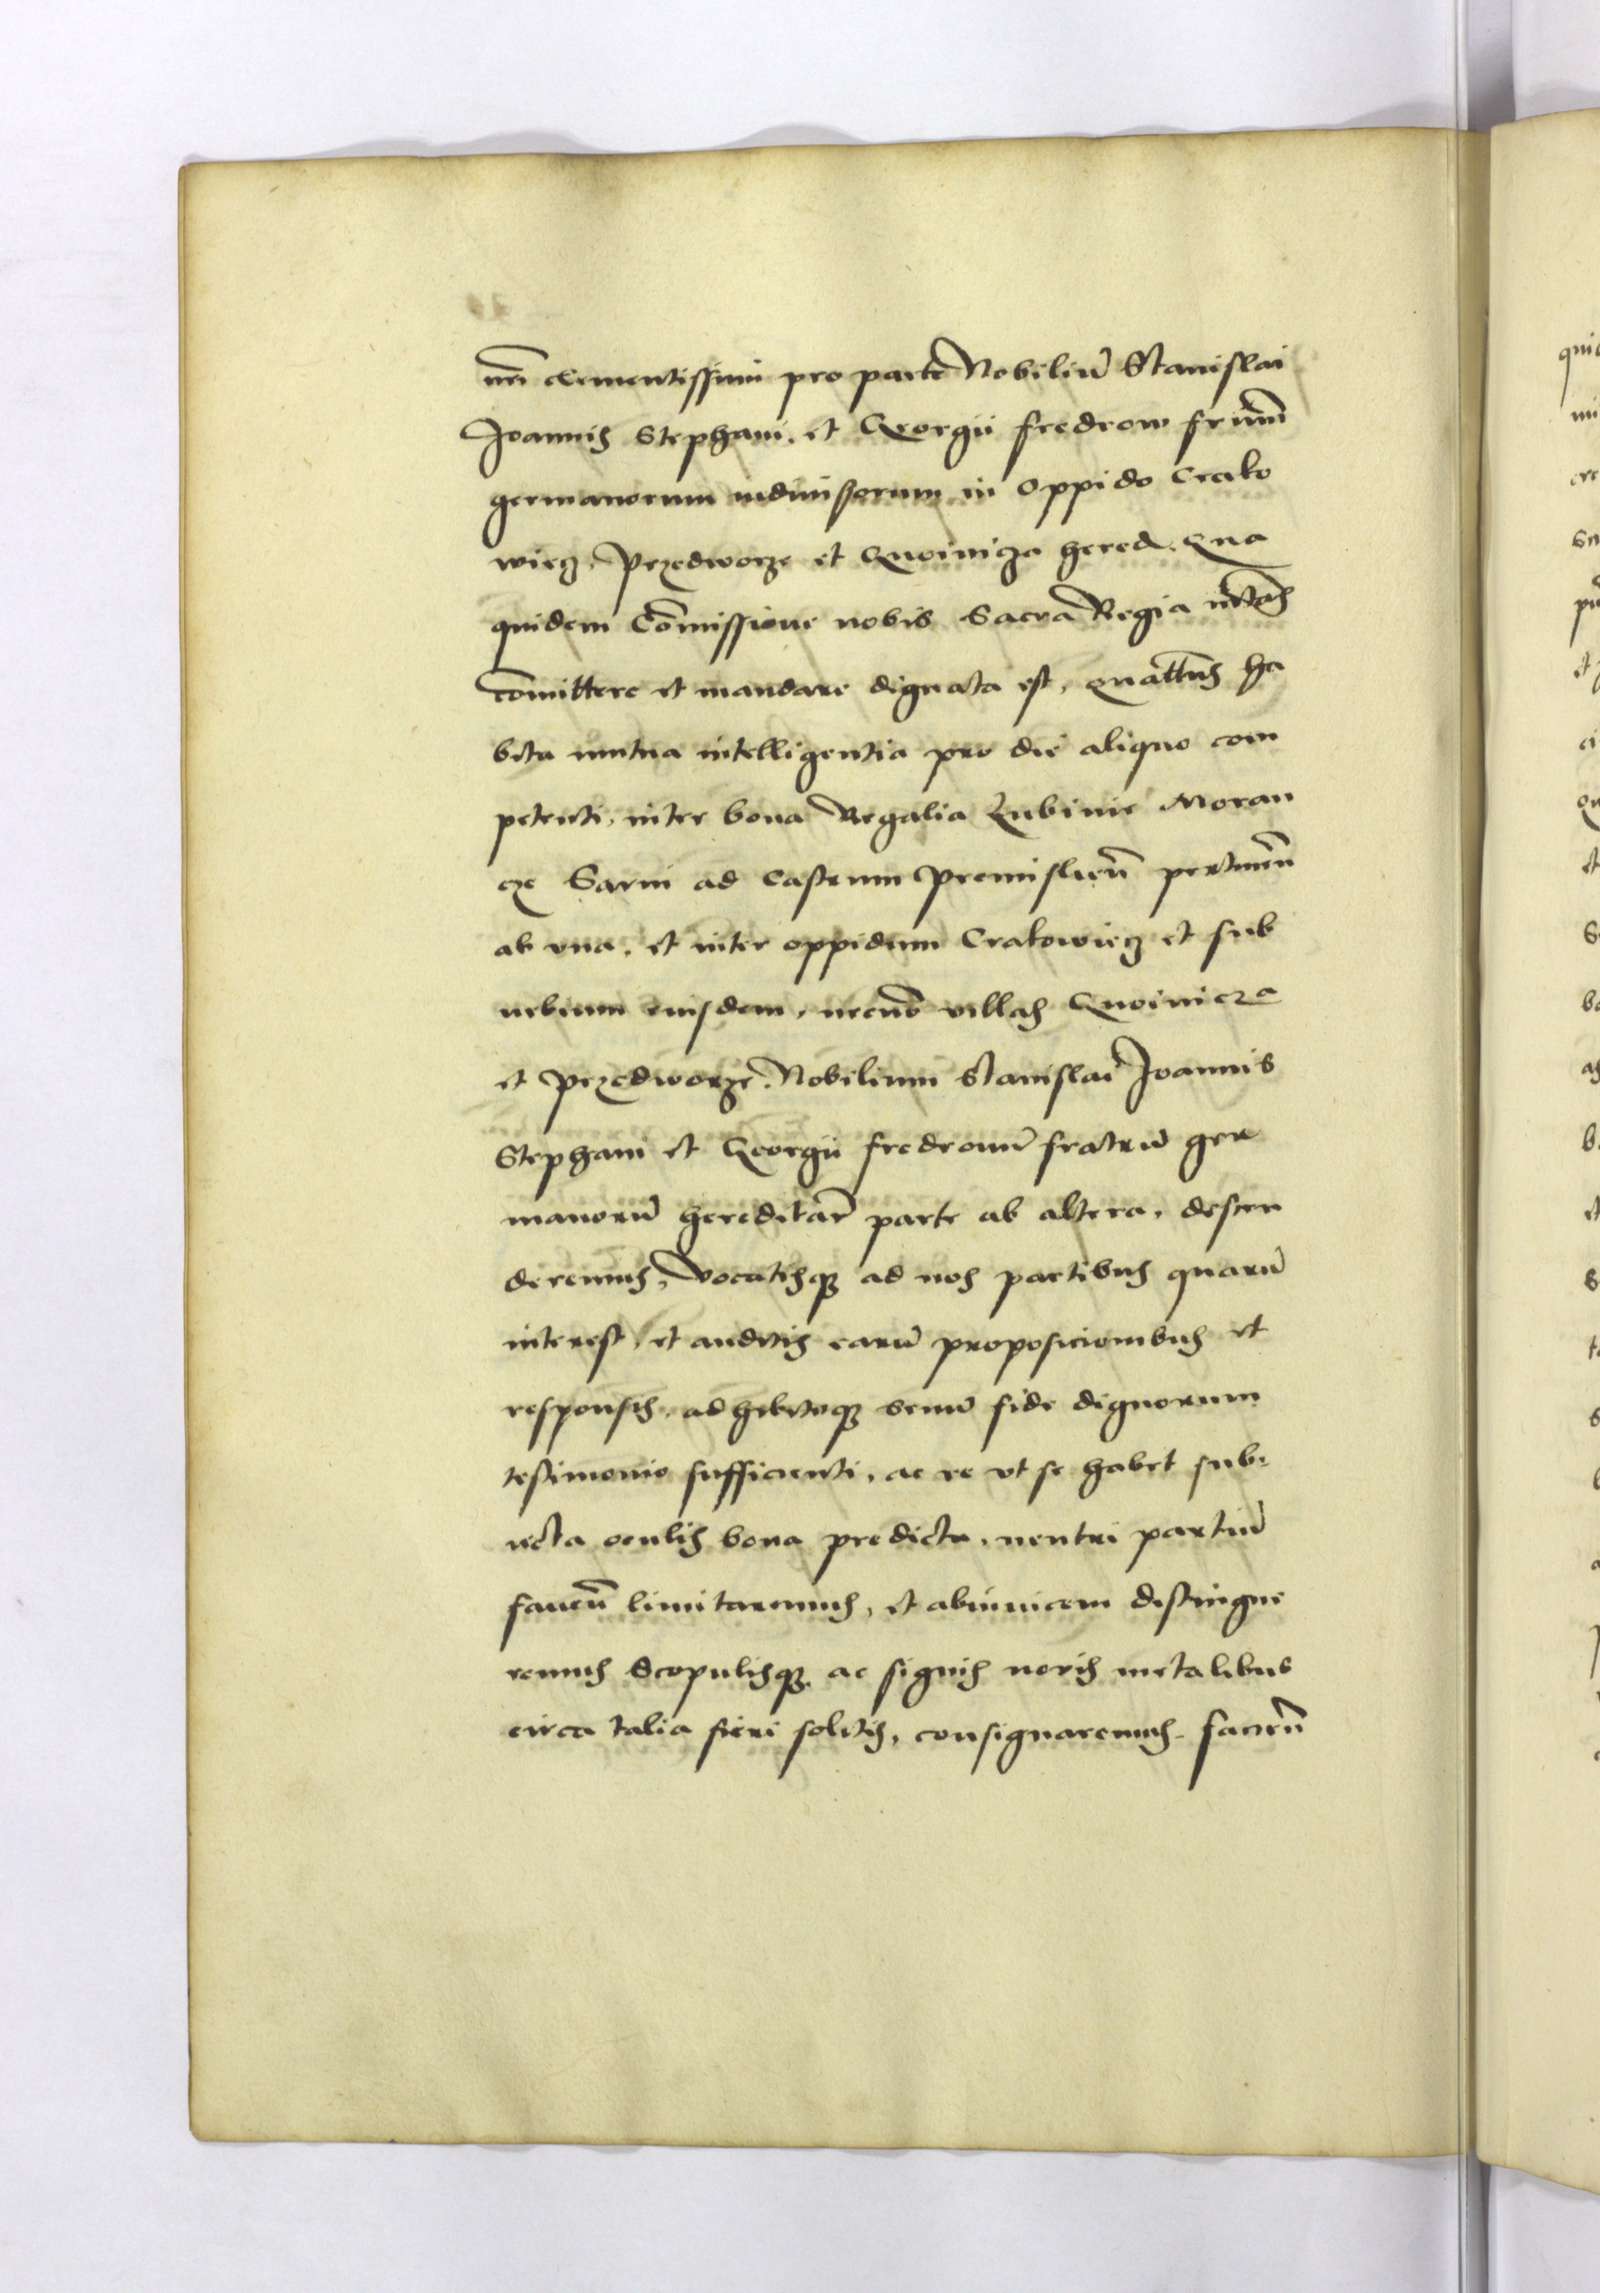 nri clementissimi pro parte Nobiliu͂ Stanislai
Joannis Stephani et Georgii fredrow fr͂um
germanorum indiuisorum in oppido Crako
wiecz, Przedworze et Gnoinicza hered. Qua
quidem Com͂issione nobis Sacra Regia mtas
com͂ittere et mandare dignata est, quattn͂s ha
bita mutua intelligentia pro die aliquo com
petenti, inter bona Regalia Lubinie Moran
cze Sarni ad castrum premislien͂ pertinen͂
ab vna, et inter oppidum Crakowiecz et sub
urbium eiusdem, necno͂ villas Gnoinicza
et Przedworze. Nobilium Stanislai Joannis
Stephani et Georgii fredrou͂ fratru͂ ger
manoru͂ hereditar͂ parte ab altera, descen
deremus, vocatisq3 ad nos partibus quaru͂
interest, et auditis earu͂ proposicionibus et
responsis, adhibitoq3 senu͂ fide dignorum
testimonio sufficienti, ac re vt se habet sub
iecta oculis bona predicta, neutri partiu͂
fauen͂ limitaremus, et abinuicem distingue
remus Scopulisq3 ac signis veris metalibus
circa talia fieri solitis, consignaremus. facien͂